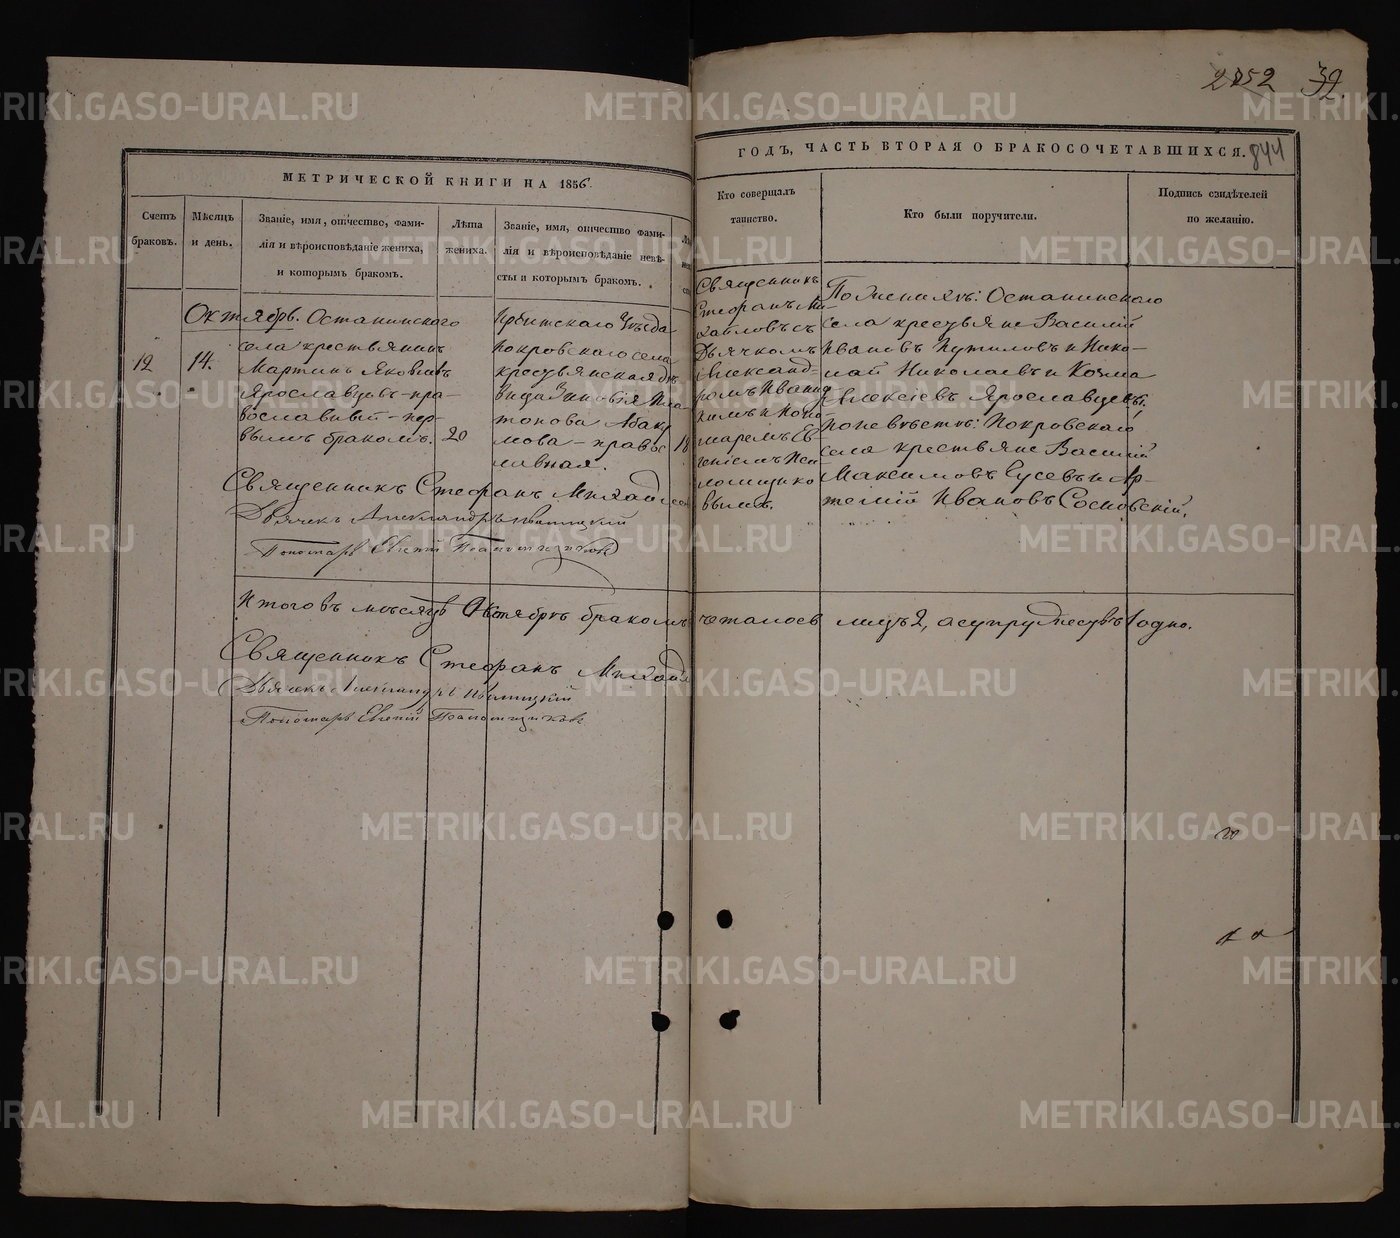 2852 32.
844
МЕТРИЧЕСКОЙ КНИГИ НА 1856
ГОДЪ, ЧАСТЬ ВТОРАЯ О БРАКОСОЧЕТАВШИХСЯ.
Счетъ
браковъ.
Мѣсяцъ
и день.
Званіе, имя, отчество, фами-
лія и вѣроисповѣданіе жениха,
и которымъ бракомъ.
Лѣта
жениха.
Званіе, имя, отчество фами-
лія и вѣроисповѣданіе невѣ-
сты и которымъ бракомъ.
Кто совершалъ
таинство.
Кто были поручители.
Подпись свидѣтелей
по желанію.
12
Октябрь.
14.
Останинскаго
села крестьянинъ
Мартинъ Яковлевъ
Ярославцевъ-пра-
вославный-пер-
вымъ бракомъ.
20
Ирбитскаго Уѣзда
Покровскаго села
крестьянская дѣ
вица Зиновія Пла
тонова Абак
мова-правос
лавная.
18
Священникъ
Стефанъ Ми-
хайловъ съ
Дьячкомъ
Александ-
ромъ Иваниц
кимъ и Поно-
маремъ Ев-
геніемъ
вымъ.
По женихѣ: Останинскаго
села крестьяне Василій
Ивановъ Путиловъ и Нико-
лай Николаевъ и Козма
Алексіевъ Ярославцевы;
по невѣстѣ: Покровскаго
села крестьяне Василій
Максимовъ Гусевъ и Ар-
темій Ивановъ Сосновскій.
Священникъ Стефанъ Михайлов
Дьячекъ Александръ Иваницкій
Пономарь Евгеній
Итого въ мѣсяцѣ Октябрѣ бракомъ сочеталось лицъ 2, а супружествъ 1 одно.
Священникъ Стефанъ Михайл
Дьячекъ Александръ Иваницкій
Пономарь Евгеній
METRIKI.GASO-URAL.RU